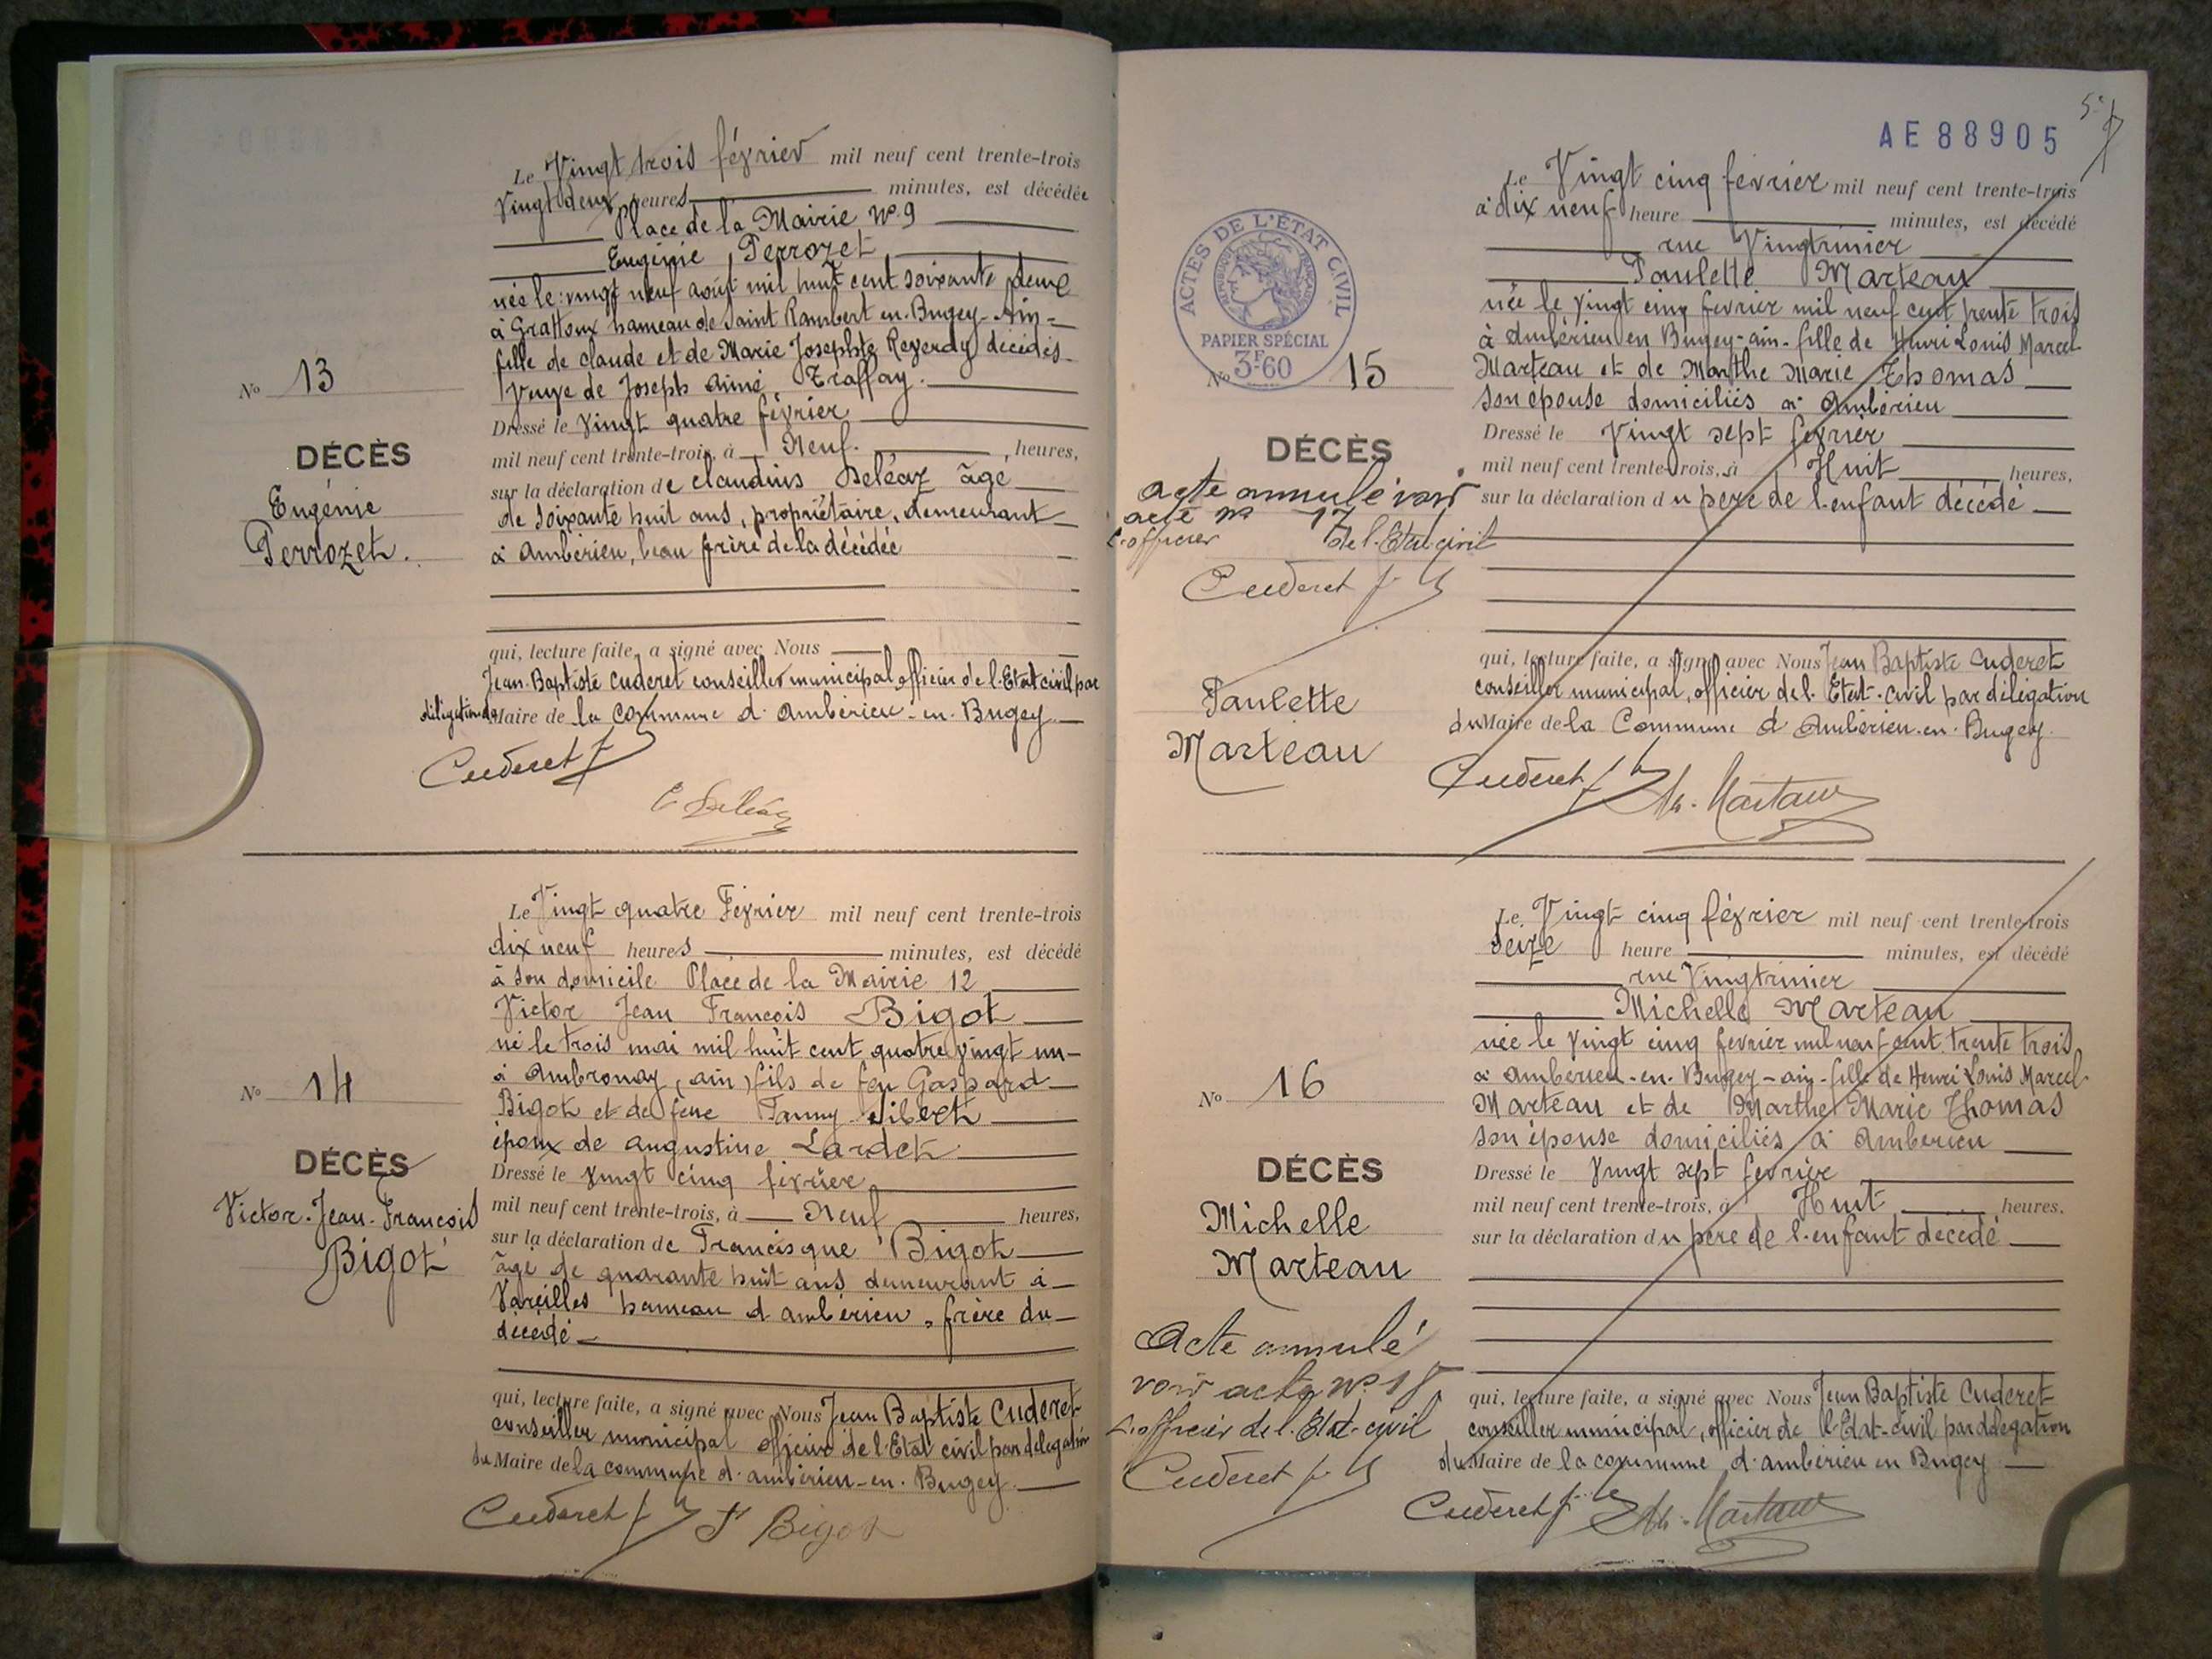 Le Vingt trois février mil neuf cent trente-trois
Vingt deux heures minutes, est décédée
Place de la Mairie No 9
Eugénie Perrozet
née le vingt neuf août mil huit cent soixante deux
à Grattoux hameau de Saint Rambert en Bugey - Ain -
fille de Claude et de Marie Josephte Reverdy décédés
Veuve de Joseph Aimé Traffay.
No 13
Dressé le vingt quatre février
DÉCÈS
mil neuf cent trente-trois, à Neuf heures,
Eugénie
Perrozet.
sur la déclaration de Claudius Deléaz âgé
de soixante huit ans, propriétaire, demeurant
à Ambérieu, beau frère de la décédée
qui, lecture faite, a signé avec Nous
Jean Baptiste Cuderet conseiller municipal officier de l'Etat civil par
délégation du Maire de la Commune d'Ambérieu-en-Bugey
Cuderet
C Deléaz
Le Vingt quatre Février mil neuf cent trente-trois
dix neuf heures minutes, est décédé
à son domicile Place de la Mairie 12
Victor Jean François Bigot
né le trois mai mil huit cent quatre vingt un
à Ambronay, (ain) fils de feu Gaspard
Bigot et de feue Fanny Sibert
époux de Augustine Lardet
No 14
DÉCÈS
Victor-Jean-François
Bigot
Dressé le vingt cinq février
mil neuf cent trente-trois, à Neuf heures,
sur la déclaration de Francisque Bigot
âgé de quarante huit ans demeurant à
Vareilles hameau d'ambérieu, frère du
décédé
qui, lecture faite, a signé avec Nous Jean Baptiste Cuderet
conseiller municipal officier de l'Etat civil par délégation
du Maire de la commune d'ambérieu-en-Bugey.
Cuderet F Bigot
AE 88905
Le Vingt cinq février mil neuf cent trente-trois
à dix neuf heure minutes, est décédé
rue Vingtrinier
Paulette Marteau
née le vingt cinq fevrier mil neuf cent trente trois
à Ambérieu en Bugey-ain-fille de Henri Louis Marcel
Marteau et de Marthe Marie Thomas
son épouse domiciliés à Ambérieu
ACTES DE L'ÉTAT CIVIL
RÉPUBLIQUE FRANÇAISE
PAPIER SPÉCIAL
3F60
No 15
DÉCÈS
acte annulé voir
acte No 17
L'officier de l'Etat civil
Cuderet
Paulette
Marteau
Dressé le Vingt sept février
mil neuf cent trente-trois, à Huit heures,
sur la déclaration du père de l'enfant décédé
qui, lecture faite, a signé avec Nous Jean Baptiste Cuderet
conseiller municipal, officier de l'Etat-civil par délégation
du Maire de la Commune d'Ambérieu-en-Bugey.
Cuderet
Le Vingt cinq février mil neuf cent trente-trois
Seize heure minutes, est décédé
rue Vingtrinier
Michelle Marteau
née le vingt cinq fevrier mil neuf cent trente trois
à Ambérieu-en-Bugey-ain-fille de Henri Louis Marcel
Marteau et de Marthe Marie Thomas
son épouse domiciliés à Ambérieu
No 16
DÉCÈS
Michelle
Marteau
Acte annulé
voir acte No 18
L'officier de l'Etat-civil
Cuderet
Dressé le Vingt sept fevrier
mil neuf cent trente-trois, à Huit heures,
sur la déclaration du père de l'enfant decédé
qui, lecture faite, a signé avec Nous Jean Baptiste Cuderet
conseiller municipal, officier de l'Etat-civil par délégation
du Maire de la commune d'ambérieu en Bugey
Cuderet